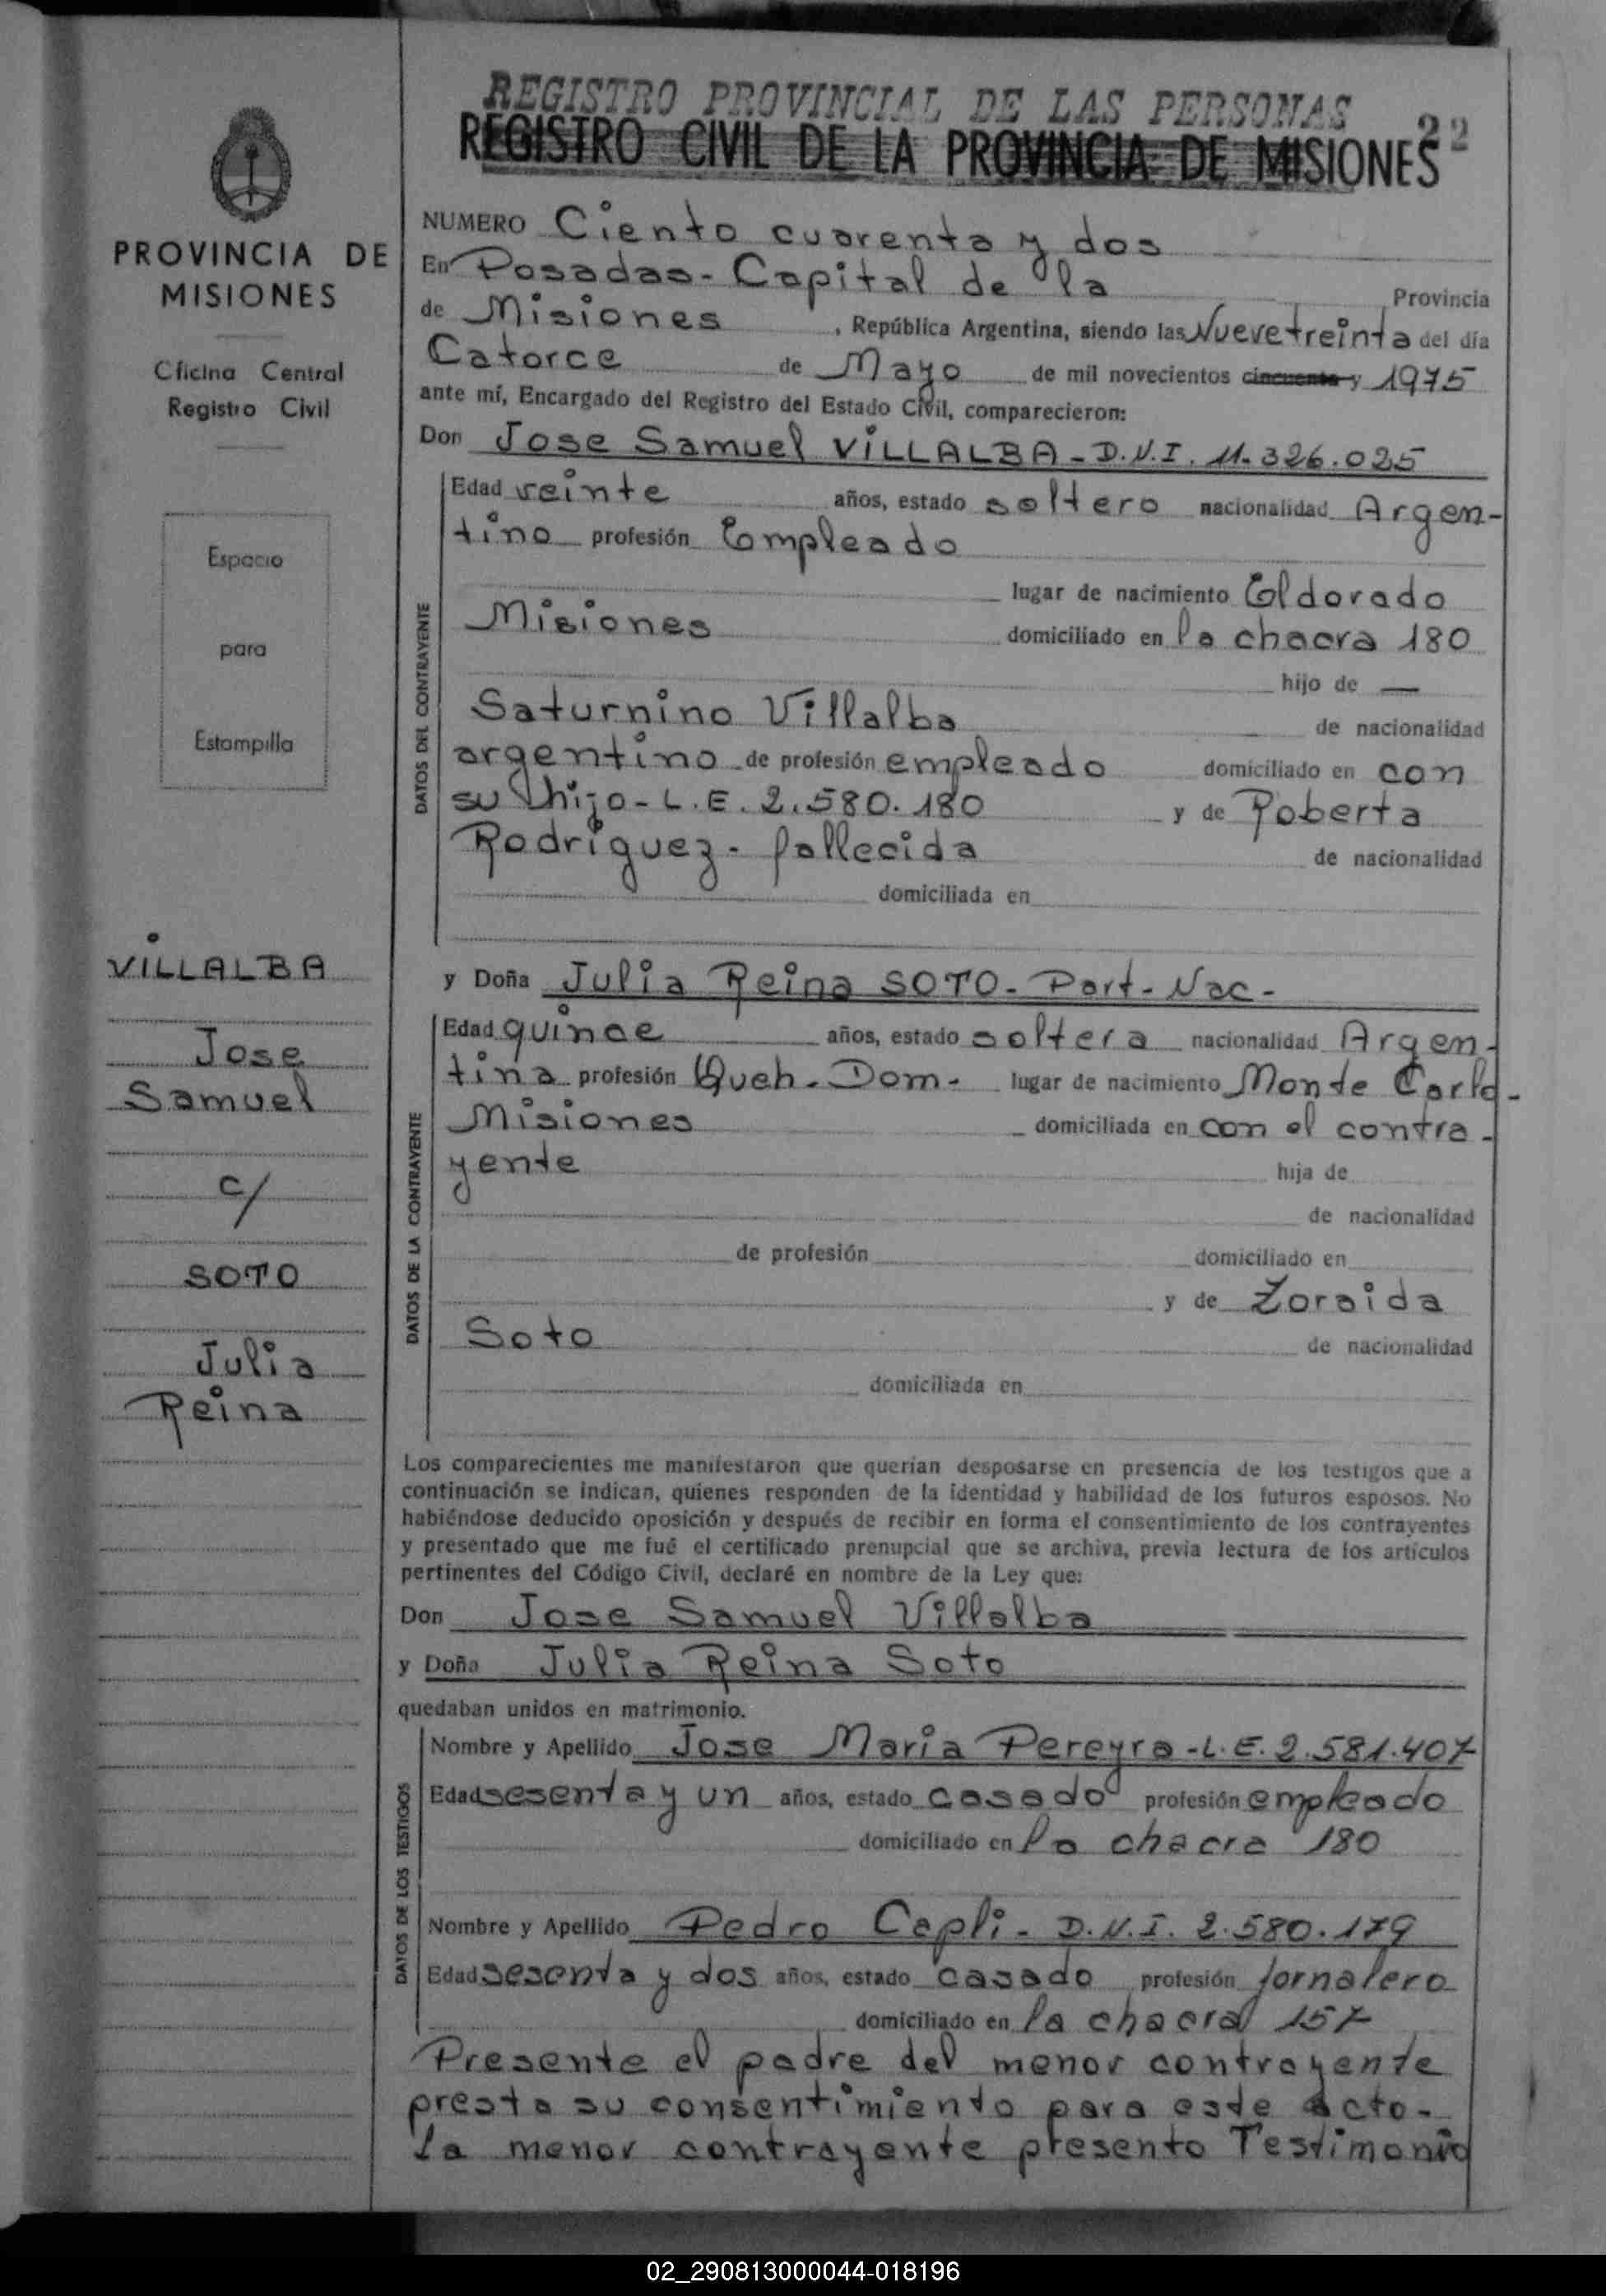 REGISTRO PROVINCIAL DE LAS PERSONAS
REGISTRO CIVIL DE LA PROVINCIA DE MISIONES
22
PROVINCIA DE
MISIONES
Oficina Central
Registro Civil
Espacio
para
Estampilla
VILLALBA
Jose
Samuel
c/
SOTO
Julia
Reina
NUMERO Ciento cuarenta y dos
En Posadas - Capital de la Provincia
de Misiones, República Argentina, siendo las Nueve treinta del día
Catorce de Mayo de mil novecientos cincuenta y 1975
ante mí, Encargado del Registro del Estado Civil, comparecieron:
Don Jose Samuel VILLALBA - D.N.I. 11.326.025
DATOS DEL CONTRAYENTE
Edad veinte años, estado soltero nacionalidad Argen-
tino profesión Empleado
lugar de nacimiento Eldorado
Misiones domiciliado en la chacra 180
hijo de —
Saturnino Villalba de nacionalidad
argentino de profesión empleado domiciliado en con
su hijo - L.E. 2.580.180 y de Roberta
Rodriguez - fallecida de nacionalidad
domiciliada en
y Doña Julia Reina SOTO - Part - Nac -
DATOS DE LA CONTRAYENTE
Edad quince años, estado soltera nacionalidad Argen-
tina profesión Queh - Dom - lugar de nacimiento Monte Carlo -
Misiones domiciliada en con el contra-
yente hija de
de nacionalidad
de profesión domiciliado en
y de Zoraida
Soto de nacionalidad
domiciliada en
Los comparecientes me manifestaron que querían desposarse en presencia de los testigos que a
continuación se indican, quienes responden de la identidad y habilidad de los futuros esposos. No
habiéndose deducido oposición y después de recibir en forma el consentimiento de los contrayentes
y presentado que me fué el certificado prenupcial que se archiva, previa lectura de los artículos
pertinentes del Código Civil, declaré en nombre de la Ley que:
Don Jose Samuel Villalba
y Doña Julia Reina Soto
quedaban unidos en matrimonio.
DATOS DE LOS TESTIGOS
Nombre y Apellido Jose Maria Pereyra - L.E. 2.581.407
Edad sesenta y un años, estado casado profesión empleado
domiciliado en la chacra 180
Nombre y Apellido Pedro Capli - D.N.I. 2.580.179
Edad sesenta y dos años, estado casado profesión jornalero
domiciliado en la chacra 157
Presente el padre del menor contrayente
presta su consentimiento para este acto -
La menor contrayente presento Testimonio
02_290813000044-018196